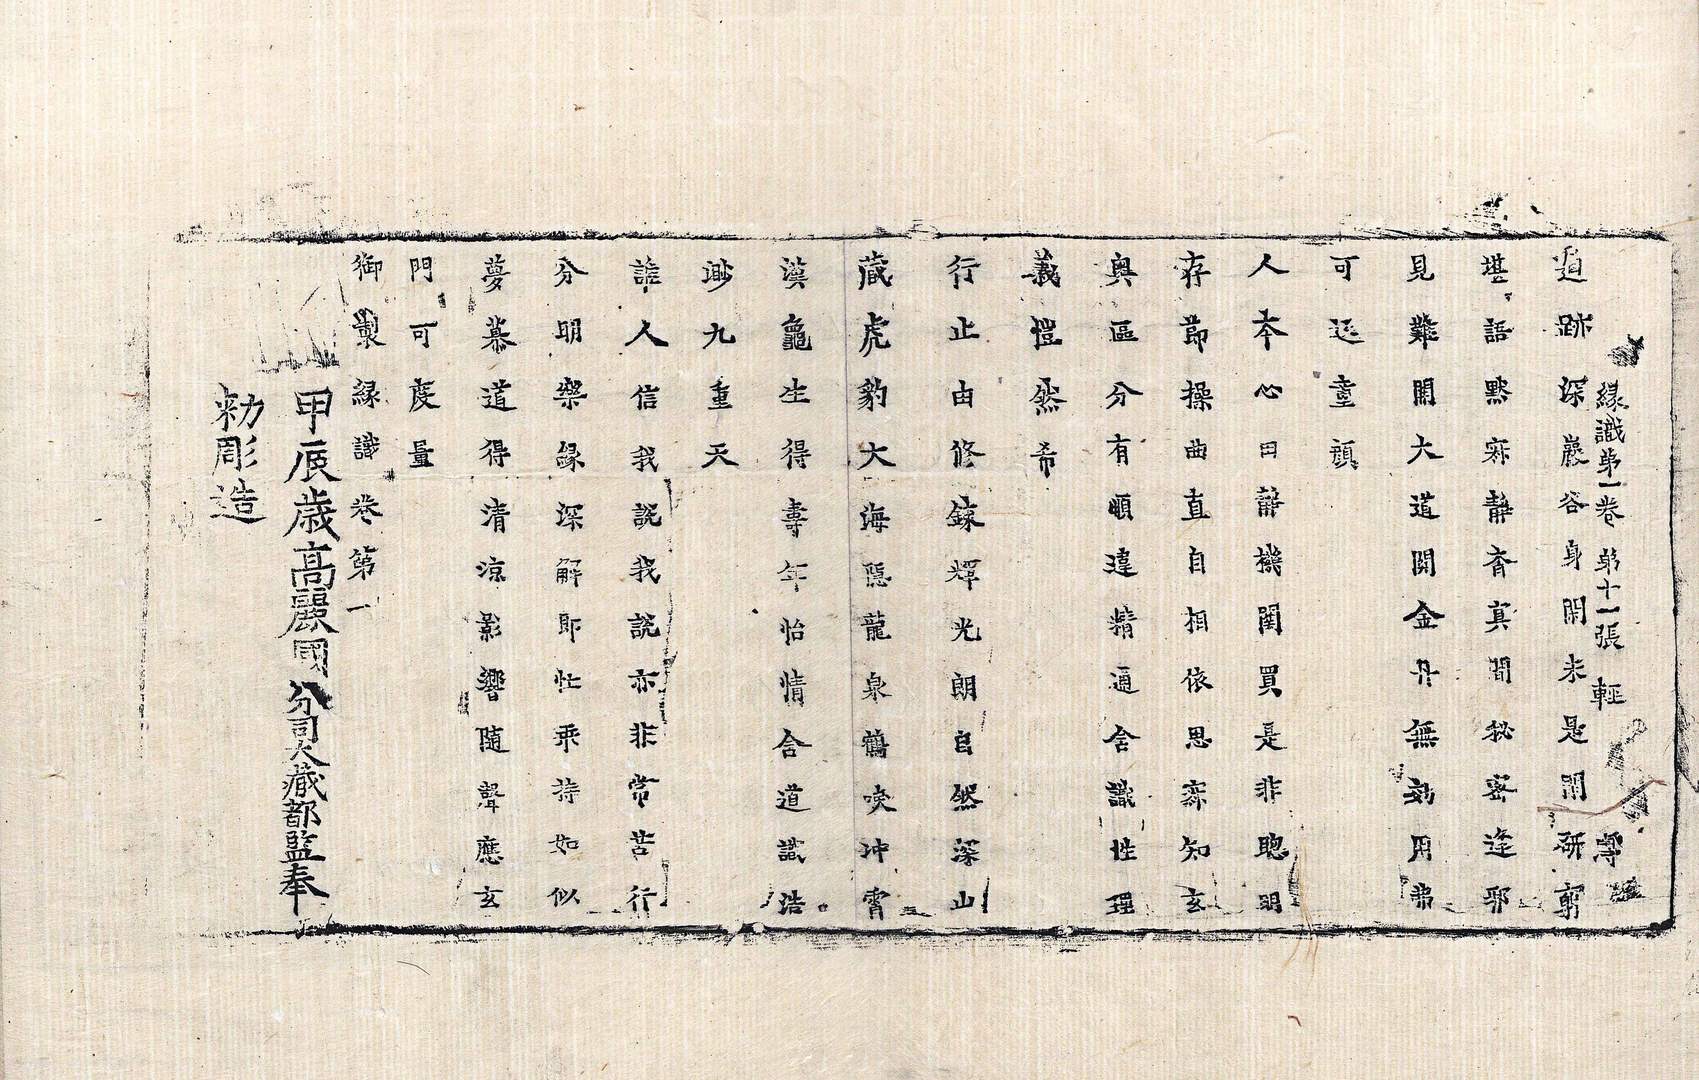 緣識第一卷 第十一張 輕
道跡深巖谷身閑未是閑研窮
堪語默寂靜杳真閒秘密逢邪
見難開大道關金丹無効用弗
可延童顔
人本心日靜機関買是非聰明
存節操曲直自相依思齊知玄
奧區分有順違精通含識性理
義愷然希
行止由修鍊輝光朗自然深山
藏虎豹大海隱龍泉鶴唳冲霄
漢龜生得壽年怡情合道識浩
渺九重天
誰人信我説我説亦非常苦行
分明樂緣深解即忙乘持如似
夢慕道得清涼影響隨聲應玄
門可度量
御製緣識卷第一
甲辰歲高麗國分司大藏都監奉
勑彫造